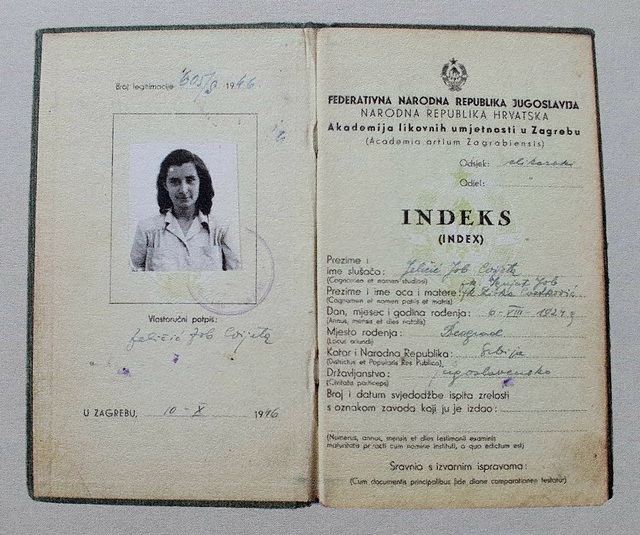 Broj legitimacije 605/3 1946.
Vlastoručni potpis:
Jeličić Job Cvijeta
U ZAGREBU, 10-X 1946
FEDERATIVNA NARODNA REPUBLIKA JUGOSLAVIJA
NARODNA REPUBLIKA HRVATSKA
Akademija likovnih umjetnosti u Zagrebu
(Academia artium Zagrabiensis)
Odsjek:
Odjel:
INDEKS
(INDEX)
Prezime i
ime slušača: Jeličić Job Cvijeta
(Cognomen et nomen studiosi)
Prezime i ime oca i matere:
(Cognomen et nomen patris et matris)
Dan, mjesec i godina rođenja: VIII - 1924
(Annus, mensis et dies natalis)
Mjesto rođenja: Beograd
(Locus oriundi)
Kotar i Narodna Republika: Srbija
(Districtus et Popularis Res Publica)
Državljanstvo: jugoslavensko
(Civitatis particeps)
Broj i datum svjedodžbe ispita zrelosti
s oznakom zavoda koji ju je izdao:
(Numerus, annus, mensis et dies testimonii examinis
maturitatis pr nomine instituti, a quo edictum est)
Sravnio s izvornim ispravama:
(Cum documentis principalibus fide dione comparationem testatur)